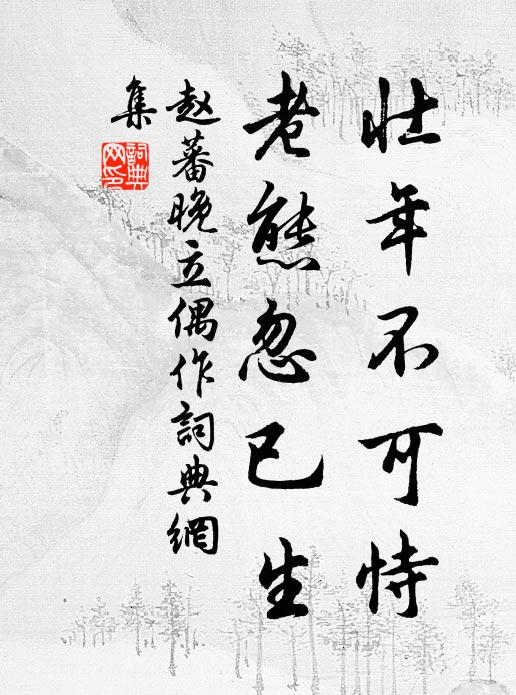 壯年不可恃
老態忽已生
趙蕃晚立偶作詞典網
集
詞典
网印